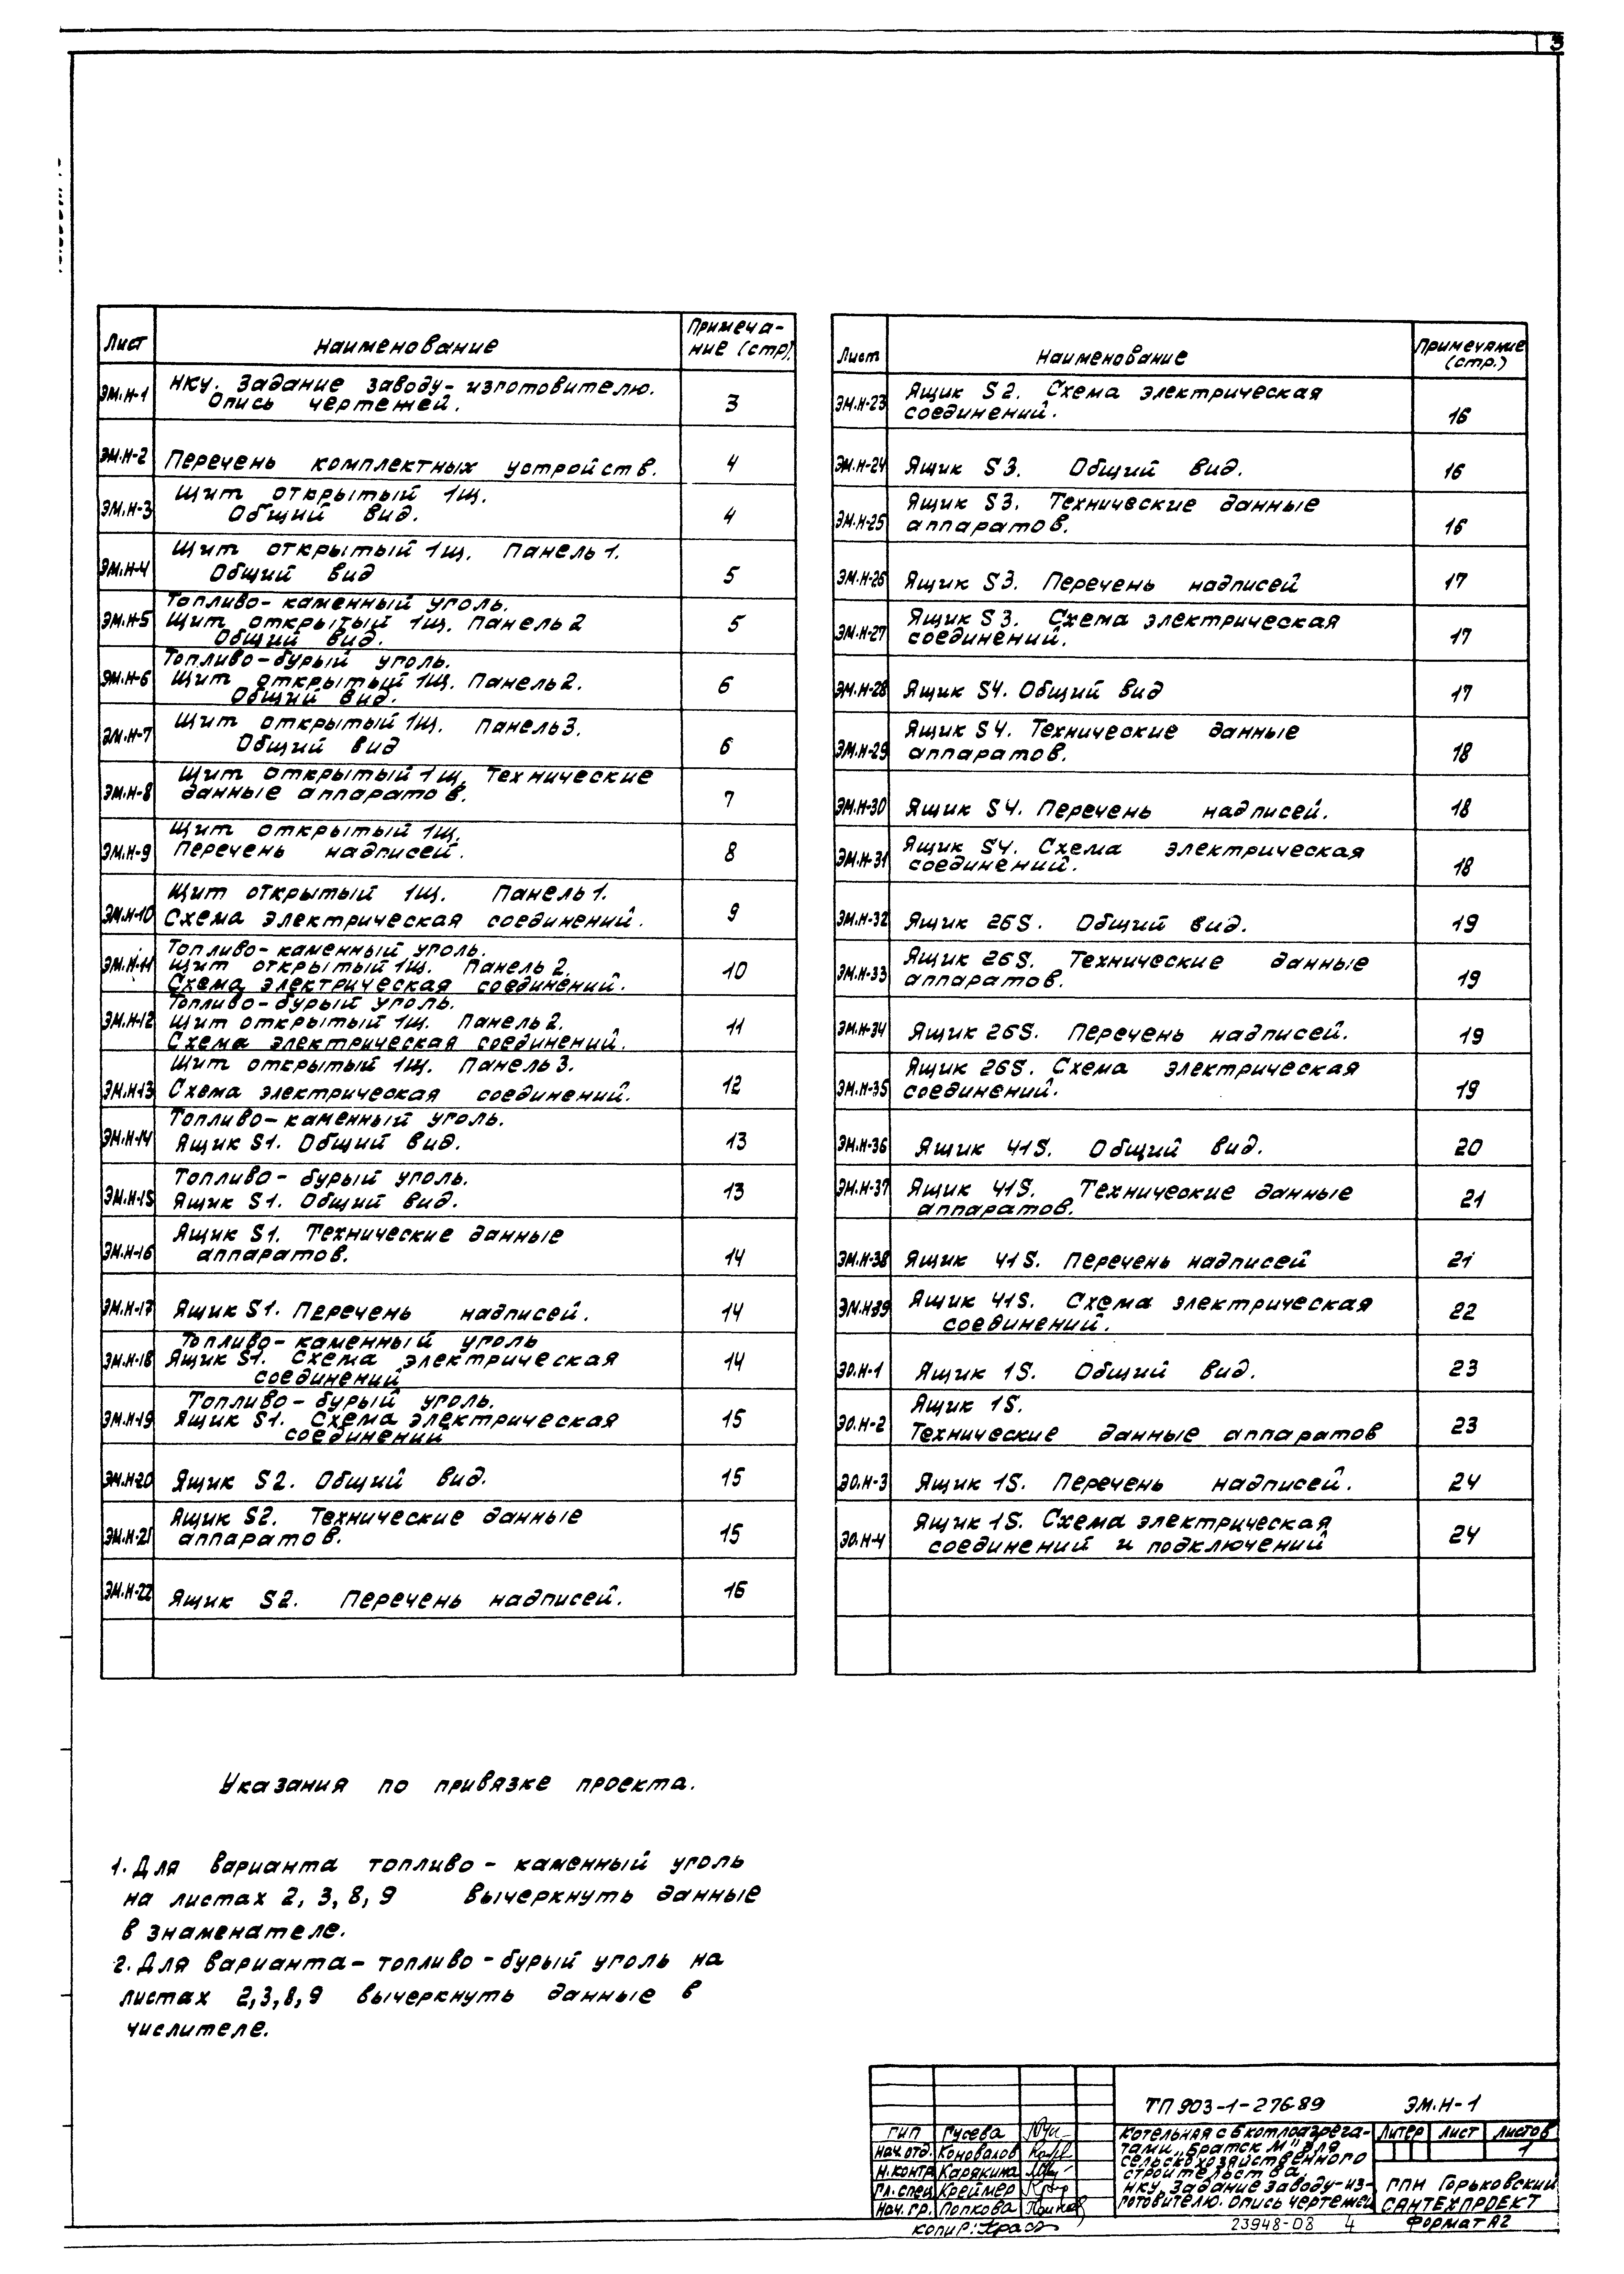 3
Лист Наименование Примеча-
ние (стр).
ЭМ.Н-1 НКУ. Задание заводу-изготовителю.
Опись чертежей. 3
ЭМ.Н-2 Перечень комплектных устройств. 4
ЭМ.Н-3 Щит открытый 1щ.
Общий вид. 4
ЭМ.Н-4 Щит открытый 1щ. Панель 1.
Общий вид 5
Топливо-каменный уголь.
ЭМ.Н-5 Щит открытый 1щ. Панель 2 5
Общий вид.
Топливо-бурый уголь.
ЭМ.Н-6 Щит открытый 1щ. Панель 2. 6
Общий вид.
ЭМ.Н-7 Щит открытый 1щ. Панель 3.
Общий вид 6
ЭМ.Н-8 Щит открытый 1щ. Технические
данные аппаратов. 7
Щит открытый 1щ.
ЭМ.Н-9 Перечень надписей. 8
Щит открытый 1щ. Панель 1.
ЭМ.Н-10 Схема электрическая соединений. 9
Топливо-каменный уголь.
ЭМ.Н-11 Щит открытый 1щ. Панель 2. 10
Схема электрическая соединений.
Топливо-бурый уголь.
ЭМ.Н-12 Щит открытый 1щ. Панель 2. 11
Схема электрическая соединений.
Щит открытый 1щ. Панель 3.
ЭМ.Н-13 Схема электрическая соединений. 12
Топливо-каменный уголь.
ЭМ.Н-14 Ящик S1. Общий вид. 13
Топливо-бурый уголь.
ЭМ.Н-15 Ящик S1. Общий вид. 13
Ящик S1. Технические данные
ЭМ.Н-16 аппаратов. 14
ЭМ.Н-17 Ящик S1. Перечень надписей. 14
Топливо-каменный уголь
ЭМ.Н-18 Ящик S1. Схема электрическая 14
соединений
Топливо-бурый уголь.
ЭМ.Н-19 Ящик S1. Схема электрическая 15
соединений
ЭМ.Н-20 Ящик S2. Общий вид. 15
Ящик S2. Технические данные
ЭМ.Н-21 аппаратов. 15
ЭМ.Н-22 Ящик S2. Перечень надписей. 16
Лист Наименование Примечание
(стр.)
ЭМ.Н-23 Ящик S2. Схема электрическая
соединений. 16
ЭМ.Н-24 Ящик S3. Общий вид. 16
Ящик S3. Технические данные
ЭМ.Н-25 аппаратов. 16
ЭМ.Н-26 Ящик S3. Перечень надписей 17
Ящик S3. Схема электрическая
ЭМ.Н-27 соединений. 17
ЭМ.Н-28 Ящик S4. Общий вид 17
Ящик S4. Технические данные
ЭМ.Н-29 аппаратов. 18
ЭМ.Н-30 Ящик S4. Перечень надписей. 18
Ящик S4. Схема электрическая
ЭМ.Н-31 соединений. 18
ЭМ.Н-32 Ящик 26S. Общий вид. 19
Ящик 26S. Технические данные
ЭМ.Н-33 аппаратов. 19
ЭМ.Н-34 Ящик 26S. Перечень надписей. 19
Ящик 26S. Схема электрическая
ЭМ.Н-35 соединений. 19
ЭМ.Н-36 Ящик 41S. Общий вид. 20
ЭМ.Н-37 Ящик 41S. Технические данные
аппаратов. 21
ЭМ.Н-38 Ящик 41S. Перечень надписей 21
ЭМ.Н-39 Ящик 41S. Схема электрическая
соединений. 22
ЭО.Н-1 Ящик 1S. Общий вид. 23
Ящик 1S.
ЭО.Н-2 Технические данные аппаратов 23
ЭО.Н-3 Ящик 1S. Перечень надписей. 24
Ящик 1S. Схема электрическая
ЭО.Н-4 соединений и подключений 24
Указания по привязке проекта.
1. Для варианта топливо - каменный уголь
на листах 2, 3, 8, 9 вычеркнуть данные
в знаменателе.
2. Для варианта - топливо - бурый уголь на
листах 2,3,8,9 вычеркнуть данные в
числителе.
ТП 903-1-276.89 ЭМ.Н-1
ГИП Гусева
Нач. отд. Коновалов
Н.контр Карякина
Гл. спец Креймер
Нач. гр. Попкова
Котельная с 6 котлоагрега-
тами „Братск М" для
сельскохозяйственного
строительства.
НКУ. Задание заводу-из-
готовителю. Опись чертежей
Литер Лист Листов
1
ГПИ Горьковский
САНТЕХПРОЕКТ
копир: 23948-08 4 Формат А2